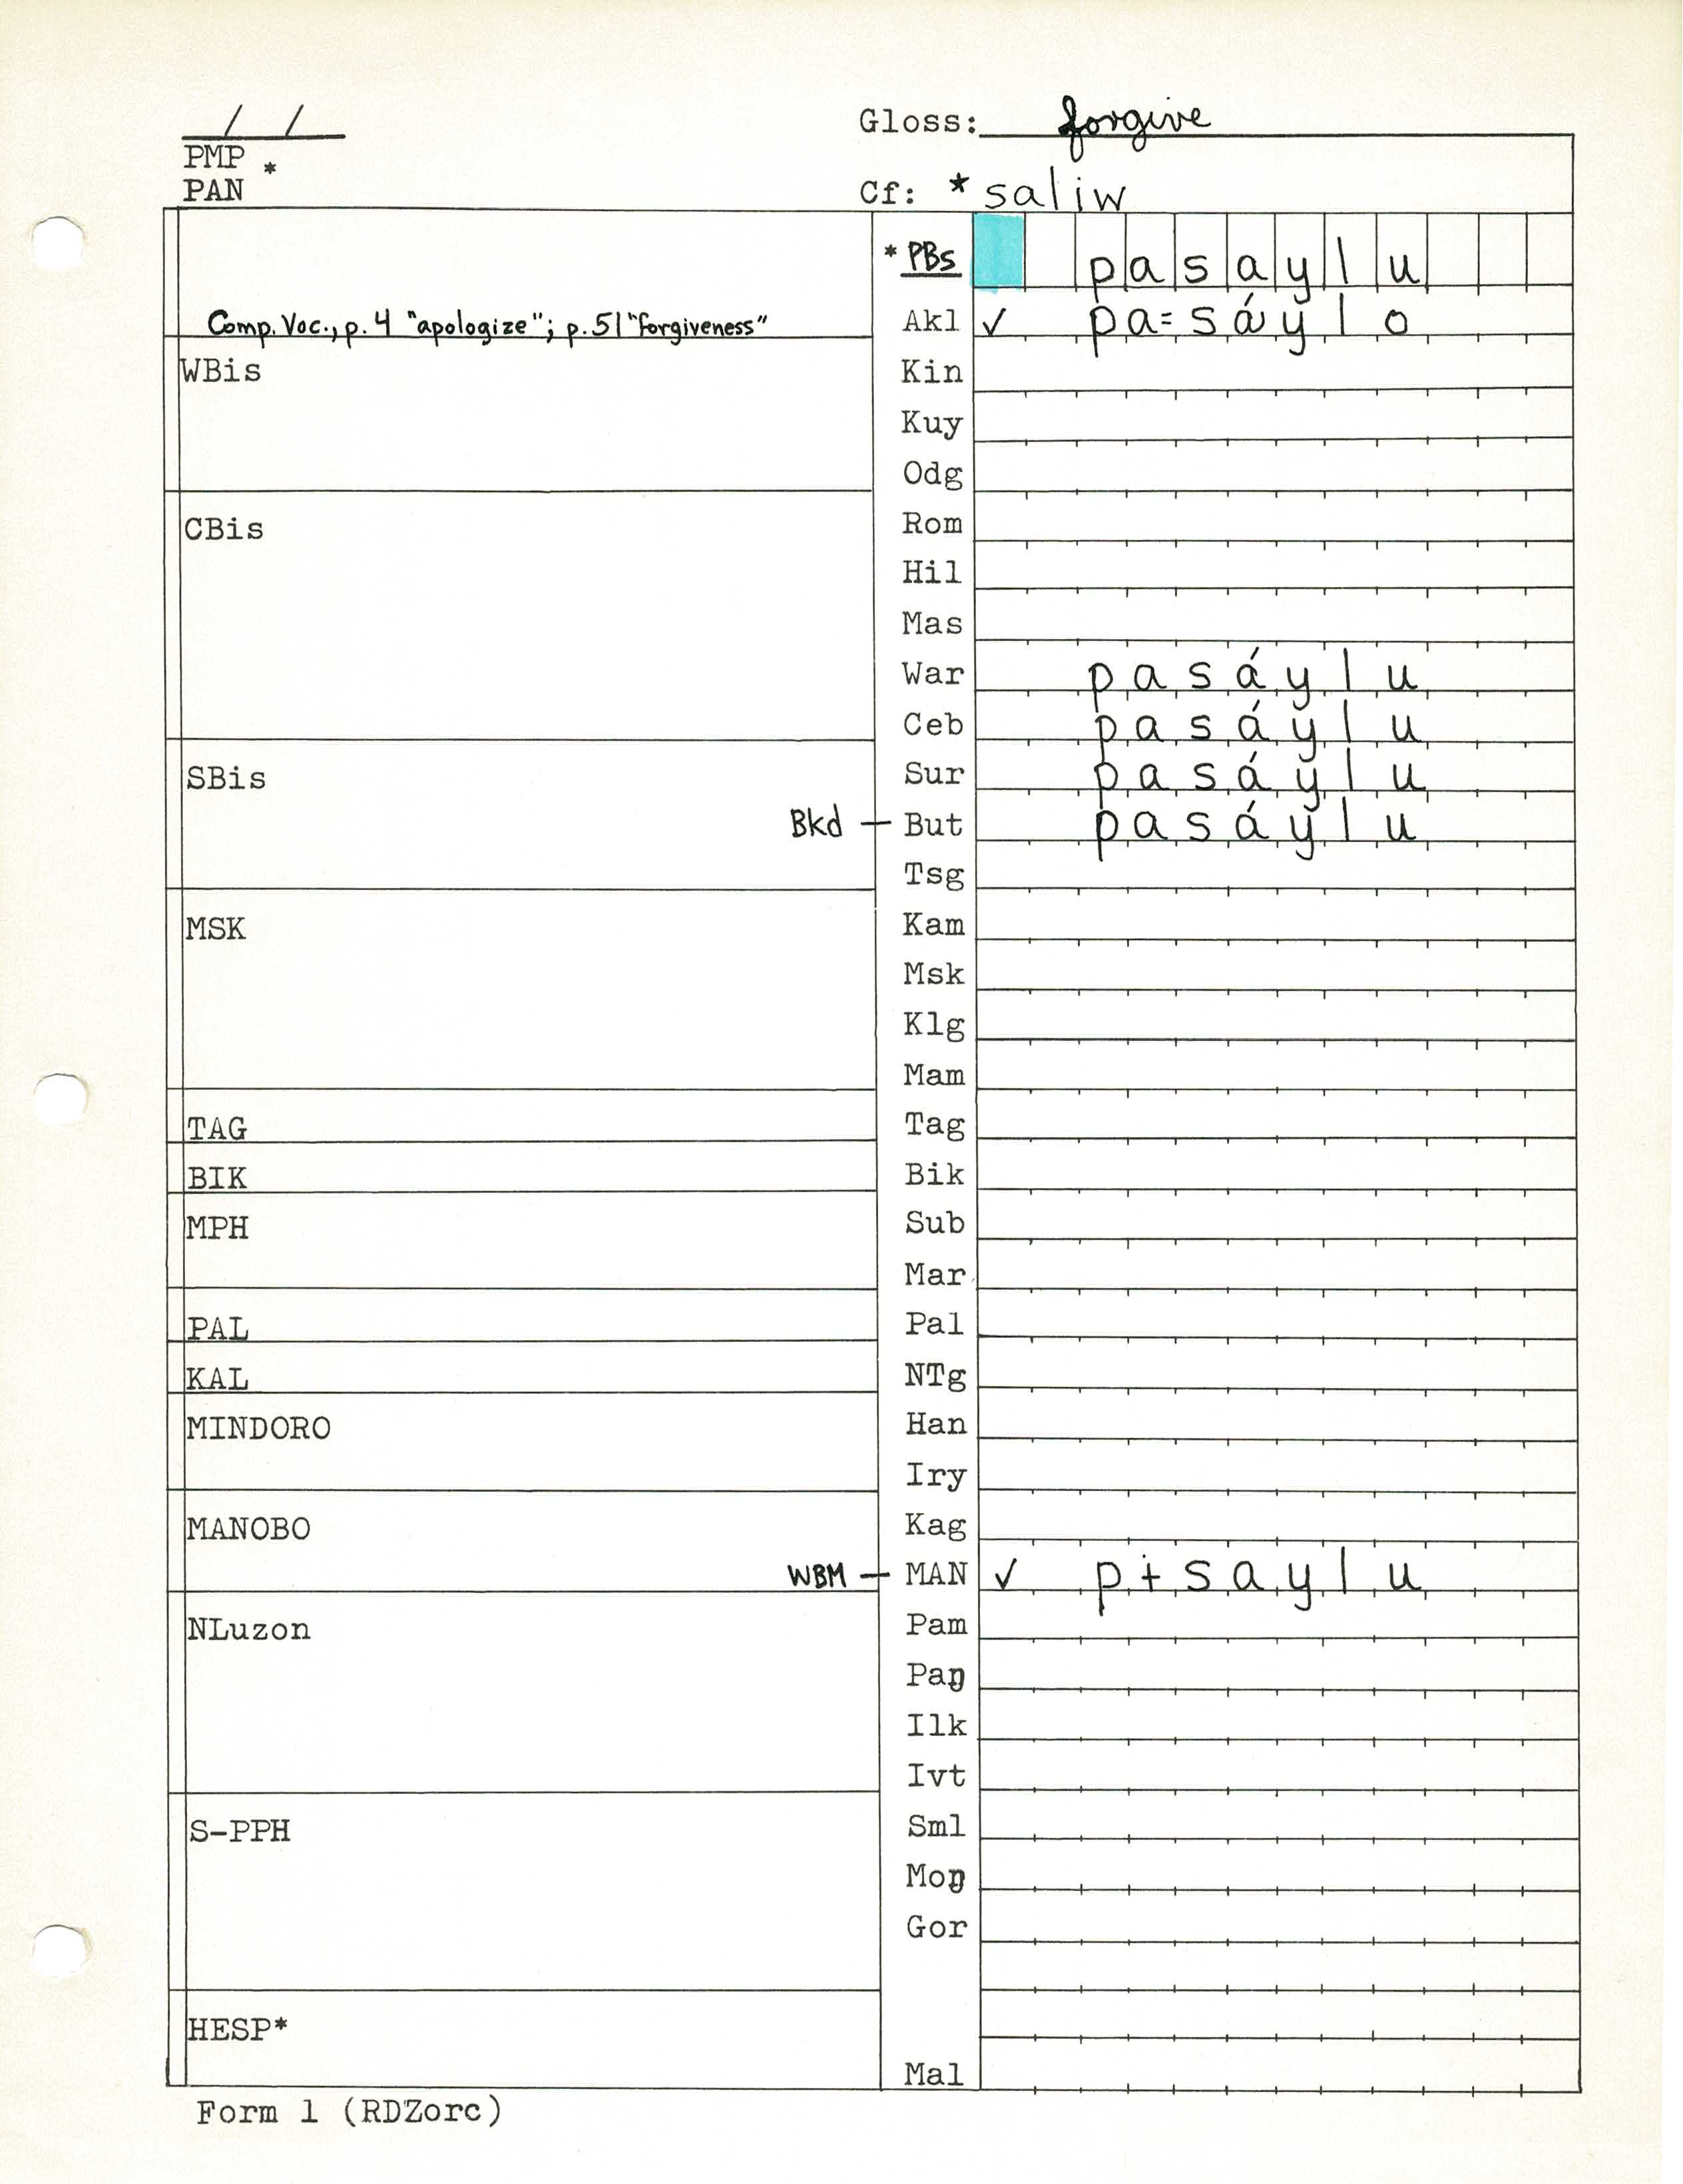 / /
Gloss: forgive
PMP *
PAN
Cf: *saliw
*PBs pasaylu
Comp. Voc., p. 4 "apologize"; p. 51 "forgiveness"
Akl ✓ pa=sáylo
WBis
Kin
Kuy
Odg
CBis
Rom
Hil
Mas
War pasáylu
Ceb pasáylu
SBis
Sur pasáylu
Bkd — But pasáylu
Tsg
MSK
Kam
Msk
Klg
Mam
TAG
Tag
BIK
Bik
MPH
Sub
Mar
PAL
Pal
KAL
NTg
MINDORO
Han
Iry
MANOBO
Kag
WBM — MAN ✓ pɨsaylu
NLuzon
Pam
Paŋ
Ilk
Ivt
S-PPH
Sml
Moŋ
Gor
HESP*
Mal
Form 1 (RDZorc)